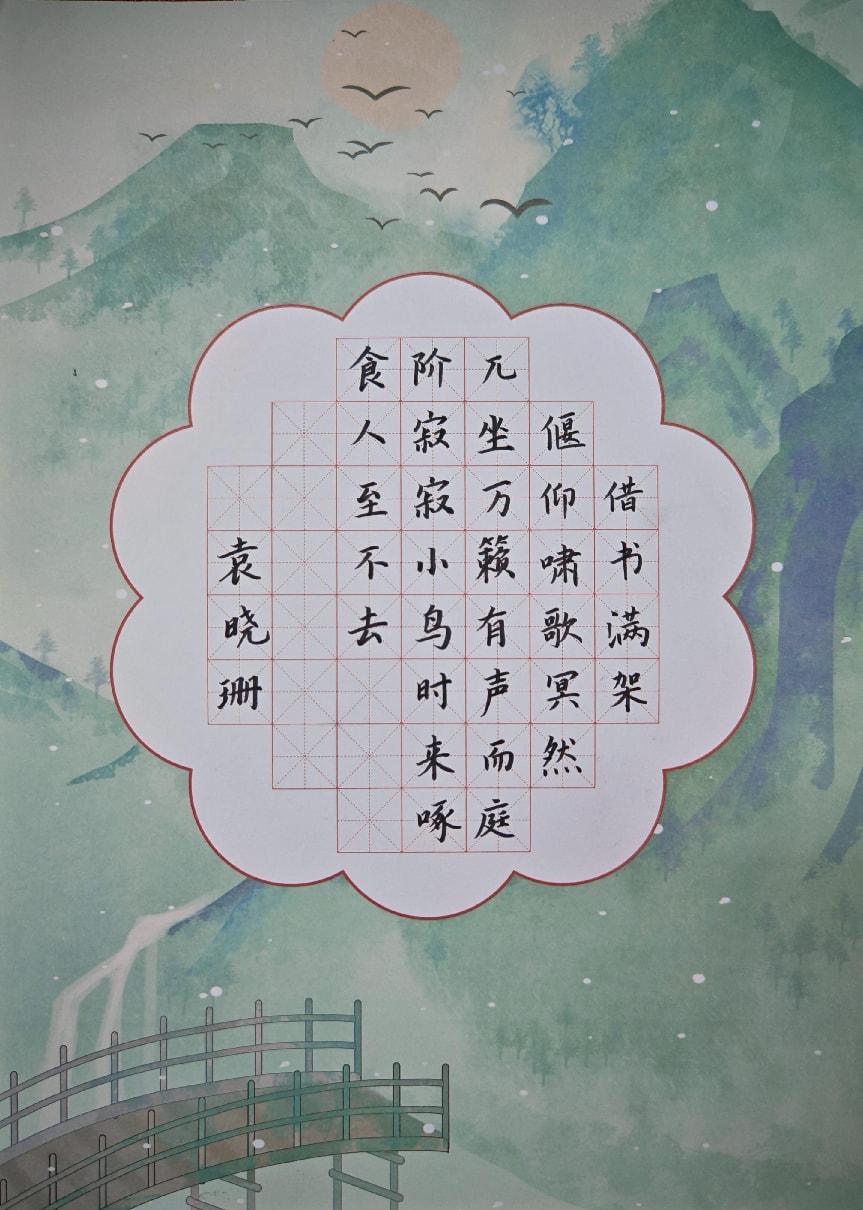 借书满架
偃仰啸歌冥然
兀坐万籁有声而庭
阶寂寂小鸟时来啄
食人至不去
袁晓珊